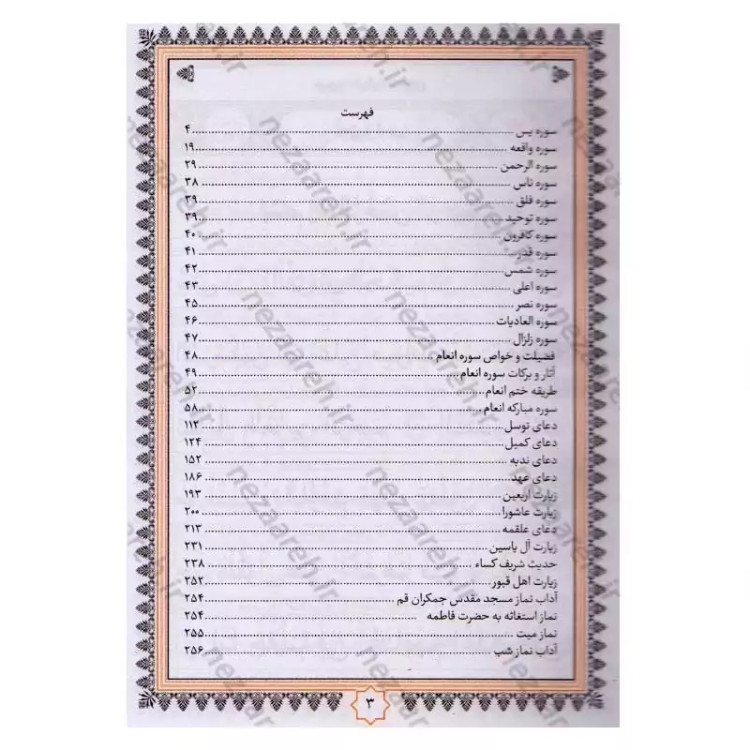 فهرست
سوره یس ........ ۴
سوره واقعه ........ ۱۹
سوره الرحمن ........ ۲۹
سوره ناس ........ ۳۸
سوره فلق ........ ۳۹
سوره توحید ........ ۳۹
سوره کافرون ........ ۴۰
سوره قدر ........ ۴۱
سوره شمس ........ ۴۲
سوره اعلی ........ ۴۳
سوره نصر ........ ۴۵
سوره العادیات ........ ۴۶
سوره زلزال ........ ۴۷
فضیلت و خواص سوره انعام ........ ۴۸
آثار و برکات سوره انعام ........ ۴۹
طریقه ختم انعام ........ ۵۲
سوره مبارکه انعام ........ ۵۸
دعای توسل ........ ۱۱۲
دعای کمیل ........ ۱۲۴
دعای ندبه ........ ۱۵۲
دعای عهد ........ ۱۸۶
زیارت اربعین ........ ۱۹۳
زیارت عاشورا ........ ۲۰۰
دعای علقمه ........ ۲۱۳
زیارت آل یاسین ........ ۲۳۱
حدیث شریف کساء ........ ۲۳۸
زیارت اهل قبور ........ ۲۵۲
آداب نماز مسجد مقدس جمکران قم ........ ۲۵۴
نماز استغاثه به حضرت فاطمه ........ ۲۵۴
نماز میت ........ ۲۵۵
آداب نماز شب ........ ۲۵۶
۳
nezaareh.ir